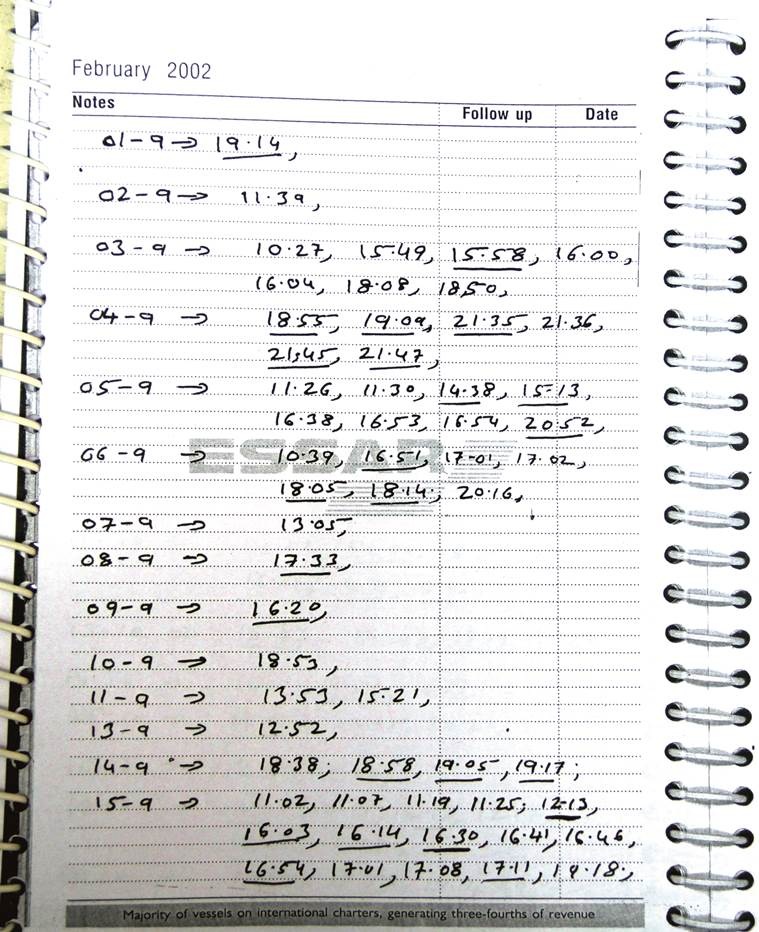 February 2002
Notes Follow up Date
01-9 → 19.14,
02-9 → 11.39,
03-9 → 10.27, 15.49, 15.58, 16.00,
16.04, 18.08, 18.50,
04-9 → 18.55, 19.09, 21.35, 21.36,
21.45, 21.47,
05-9 → 11.26, 11.30, 14.38, 15.13,
16.38, 16.53, 16.54, 20.52,
ESSAR
06-9 → 10.39, 16.51, 17.01, 17.02,
18.05, 18.14, 20.16,
07-9 → 13.05,
08-9 → 17.33,
09-9 → 16.20,
10-9 → 18.53,
11-9 → 13.53, 15.21,
13-9 → 12.52,
14-9 → 18.38; 18.58, 19.05, 19.17;
15-9 → 11.02, 11.07, 11.19, 11.25; 12.13,
16.03, 16.14, 16.30, 16.41, 16.46,
16.54, 17.01, 17.08, 17.11,
Majority of vessels on international charters, generating three-fourths of revenue